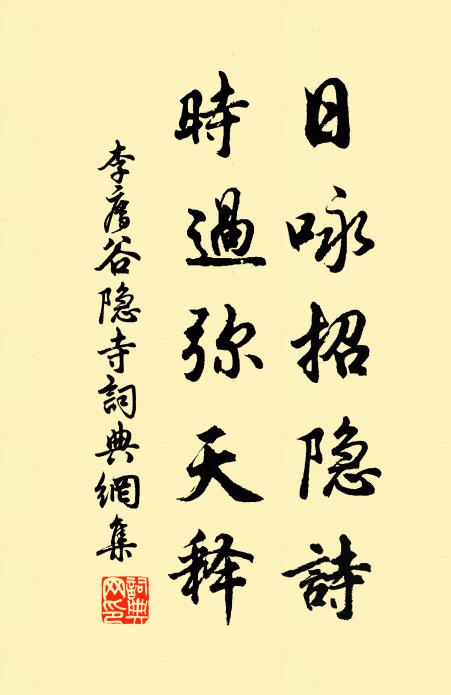 日咏招隐詩
時過弥天释
李廌谷隐寺詞典網集
詞典
网印